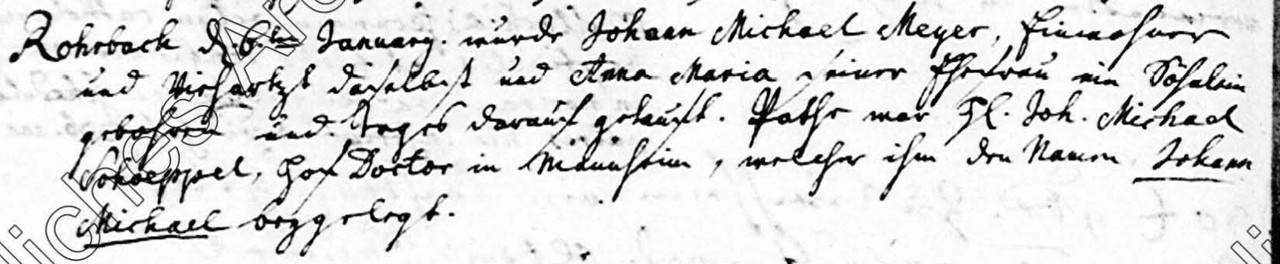 Rohrbach d. 6.ten January. wurde Johann Michael Meyer, Einwohner
und Viehartzt daselbst und Anna Maria seiner Ehefrau ein Söhnlein
gebohren und Tages darauf getauft. Pathe war H. Joh. Michael
Schoeppel, Hof Doctor in Mannheim, welcher ihm den Namen Johann
Michael beygelegt.